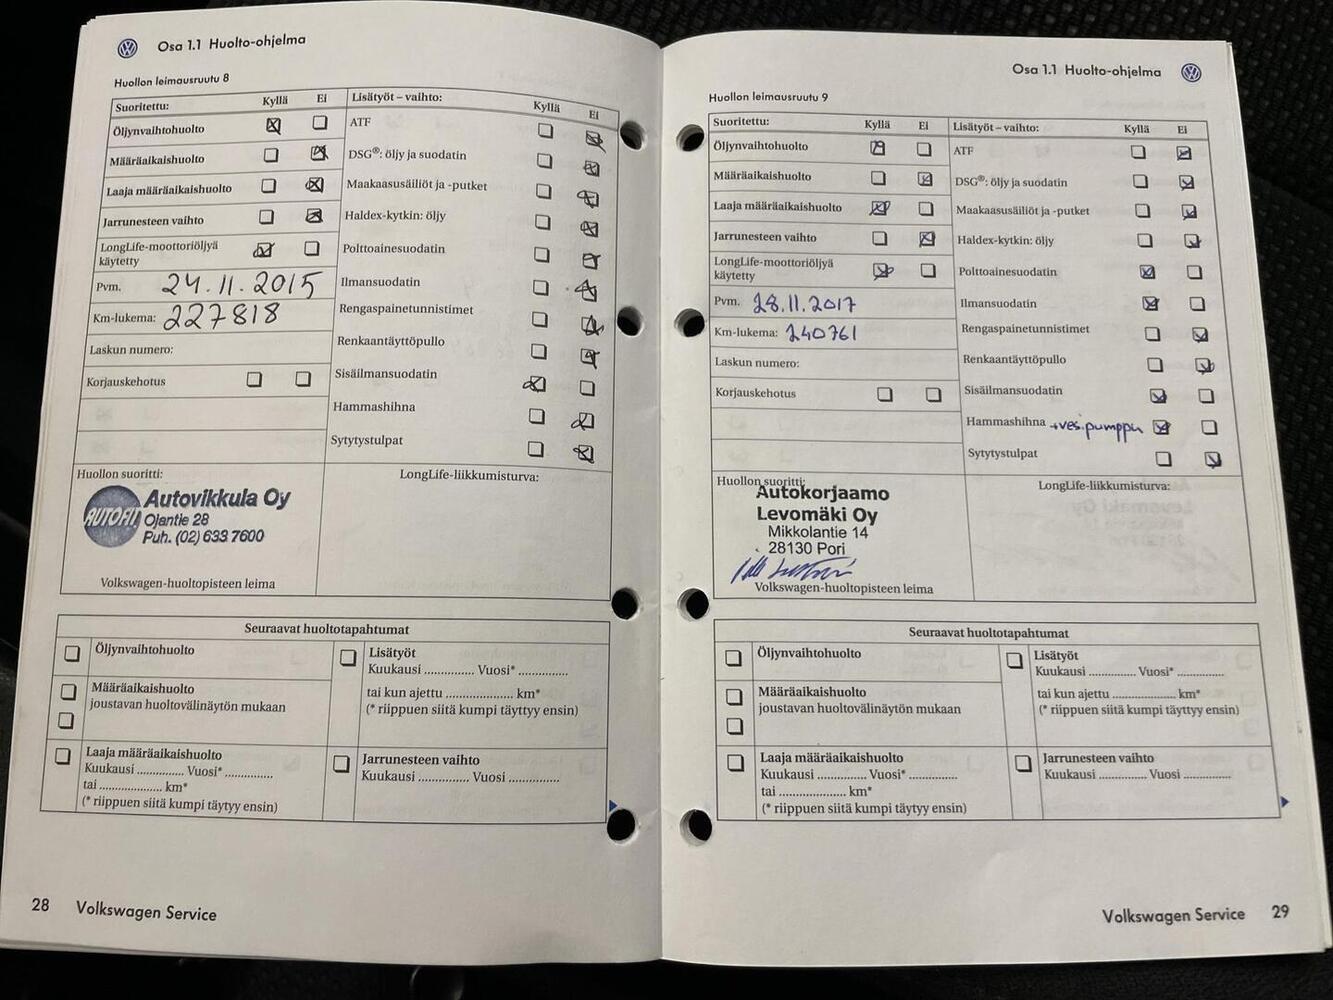 Osa 1.1 Huolto-ohjelma
Huollon leimausruutu 8
Suoritettu: Kyllä Ei
Öljynvaihtohuolto
Määräaikaishuolto
Laaja määräaikaishuolto
Jarrunesteen vaihto
LongLife-moottoriöljyä
käytetty
Pvm. 24.11.2015
Km-lukema: 227818
Laskun numero:
Korjauskehotus
Lisätyöt – vaihto: Kyllä Ei
ATF
DSG®: öljy ja suodatin
Maakaasusäiliöt ja -putket
Haldex-kytkin: öljy
Polttoainesuodatin
Ilmansuodatin
Rengaspainetunnistimet
Renkaantäyttöpullo
Sisäilmansuodatin
Hammashihna
Sytytystulpat
Huollon suoritti:
AUTOFIT
Autovikkula Oy
Ojantie 28
Puh. (02) 633 7600
Volkswagen-huoltopisteen leima
LongLife-liikkumisturva:
Seuraavat huoltotapahtumat
Öljynvaihtohuolto
Määräaikaishuolto
joustavan huoltovälinäytön mukaan
Laaja määräaikaishuolto
Kuukausi .............. Vuosi* ..............
tai .................... km*
(* riippuen siitä kumpi täytyy ensin)
Lisätyöt
Kuukausi .............. Vuosi* ..............
tai kun ajettu .................... km*
(* riippuen siitä kumpi täyttyy ensin)
Jarrunesteen vaihto
Kuukausi .............. Vuosi ..............
28 Volkswagen Service
Osa 1.1 Huolto-ohjelma
Huollon leimausruutu 9
Suoritettu: Kyllä Ei
Öljynvaihtohuolto
Määräaikaishuolto
Laaja määräaikaishuolto
Jarrunesteen vaihto
LongLife-moottoriöljyä
käytetty
Pvm. 28.11.2017
Km-lukema: 240761
Laskun numero:
Korjauskehotus
Lisätyöt – vaihto: Kyllä Ei
ATF
DSG®: öljy ja suodatin
Maakaasusäiliöt ja -putket
Haldex-kytkin: öljy
Polttoainesuodatin
Ilmansuodatin
Rengaspainetunnistimet
Renkaantäyttöpullo
Sisäilmansuodatin
Hammashihna +ves.pumppu
Sytytystulpat
Huollon suoritti:
Autokorjaamo
Levomäki Oy
Mikkolantie 14
28130 Pori
Volkswagen-huoltopisteen leima
LongLife-liikkumisturva:
Seuraavat huoltotapahtumat
Öljynvaihtohuolto
Määräaikaishuolto
joustavan huoltovälinäytön mukaan
Laaja määräaikaishuolto
Kuukausi .............. Vuosi* ..............
tai .................... km*
(* riippuen siitä kumpi täytyy ensin)
Lisätyöt
Kuukausi .............. Vuosi* ..............
tai kun ajettu .................... km*
(* riippuen siitä kumpi täyttyy ensin)
Jarrunesteen vaihto
Kuukausi .............. Vuosi ..............
Volkswagen Service 29